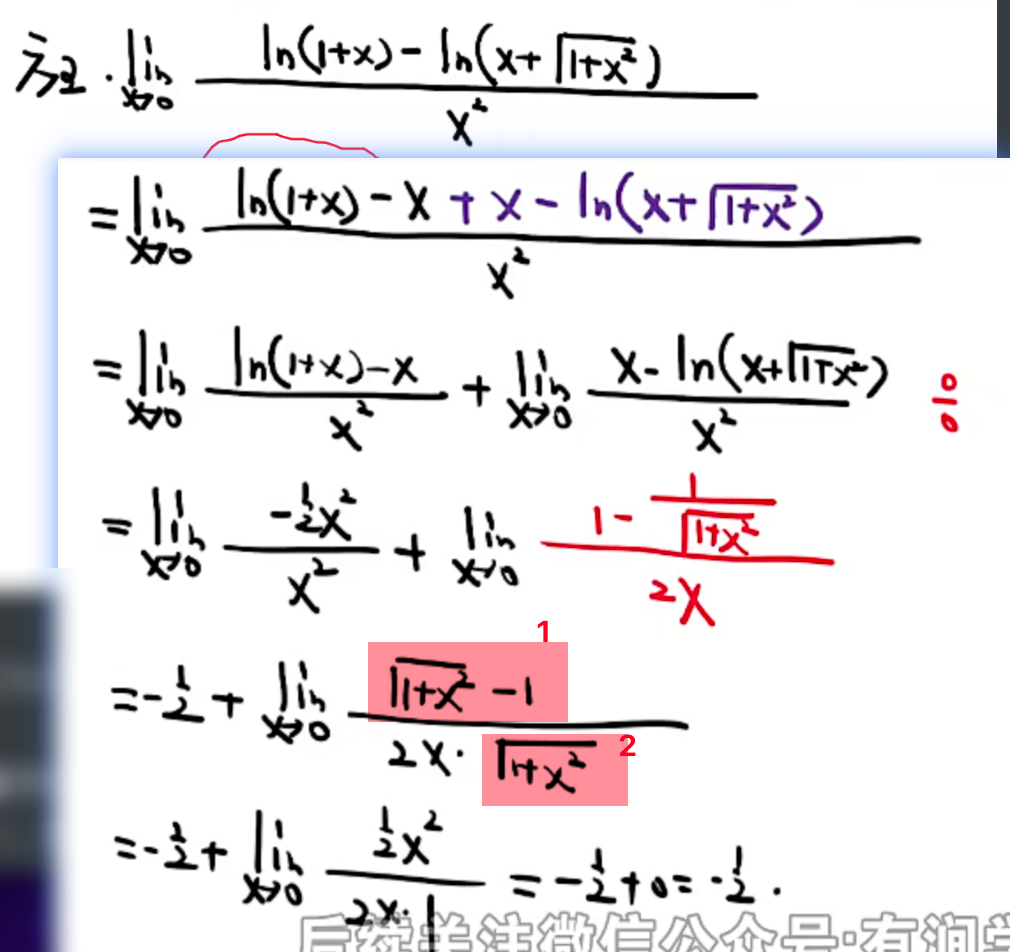 方法2. lim x→0 (ln(1+x) - ln(x+√(1+x²))) / x²
= lim x→0 (ln(1+x) - x + x - ln(x+√(1+x²))) / x²
= lim x→0 (ln(1+x) - x) / x² + lim x→0 (x - ln(x+√(1+x²))) / x² 0/0
= lim x→0 (-½x²) / x² + lim x→0 (1 - 1/√(1+x²)) / 2x
1
= -½ + lim x→0 (√(1+x²) - 1) / (2x·√(1+x²))
2
= -½ + lim x→0 (½x²) / (2x·1) = -½ + 0 = -½.
后续关注微信公众号:有润学